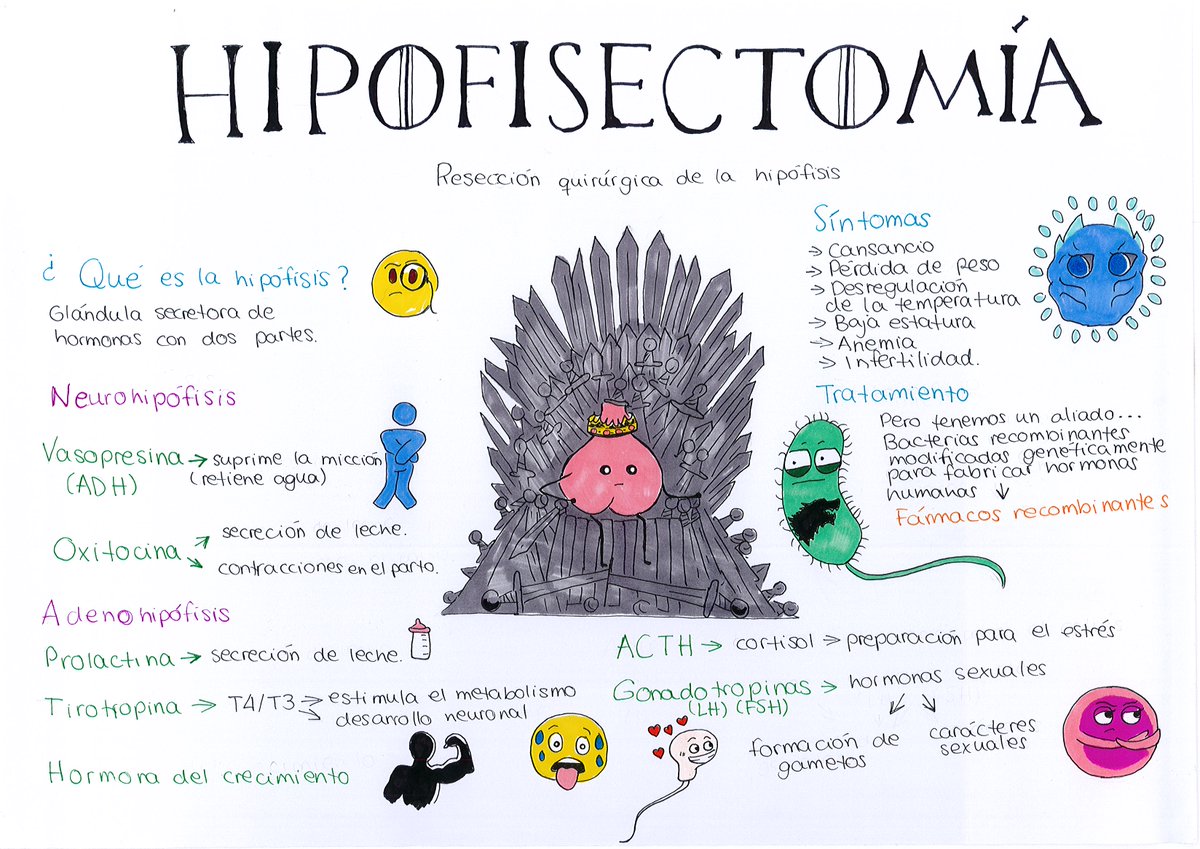 HIPOFISECTOMÍA
Resección quirúrgica de la hipófisis
¿ Qué es la hipófisis?
Glándula secretora de
hormonas con dos partes.
Neurohipófisis
Vasopresina → suprime la micción
(ADH) (retiene agua)
Oxitocina
secreción de leche.
contracciones en el parto.
Adenohipófisis
Prolactina → secreción de leche.
Tirotropina → T4/T3 → estimula el metabolismo
→ desarrollo neuronal
Hormona del crecimiento
Síntomas
→ Cansancio
→ Pérdida de peso
→ Desregulación
de la temperatura
→ Baja estatura
→ Anemia
→ Infertilidad.
Tratamiento
Pero tenemos un aliado...
Bacterias recombinantes
modificadas genéticamente
para fabricar hormonas
humanas ↓
Fármacos recombinantes
ACTH → cortisol → preparación para el estrés
Gonadotropinas → hormonas sexuales
(LH) (FSH)
formación de
gametos
carácteres
sexuales